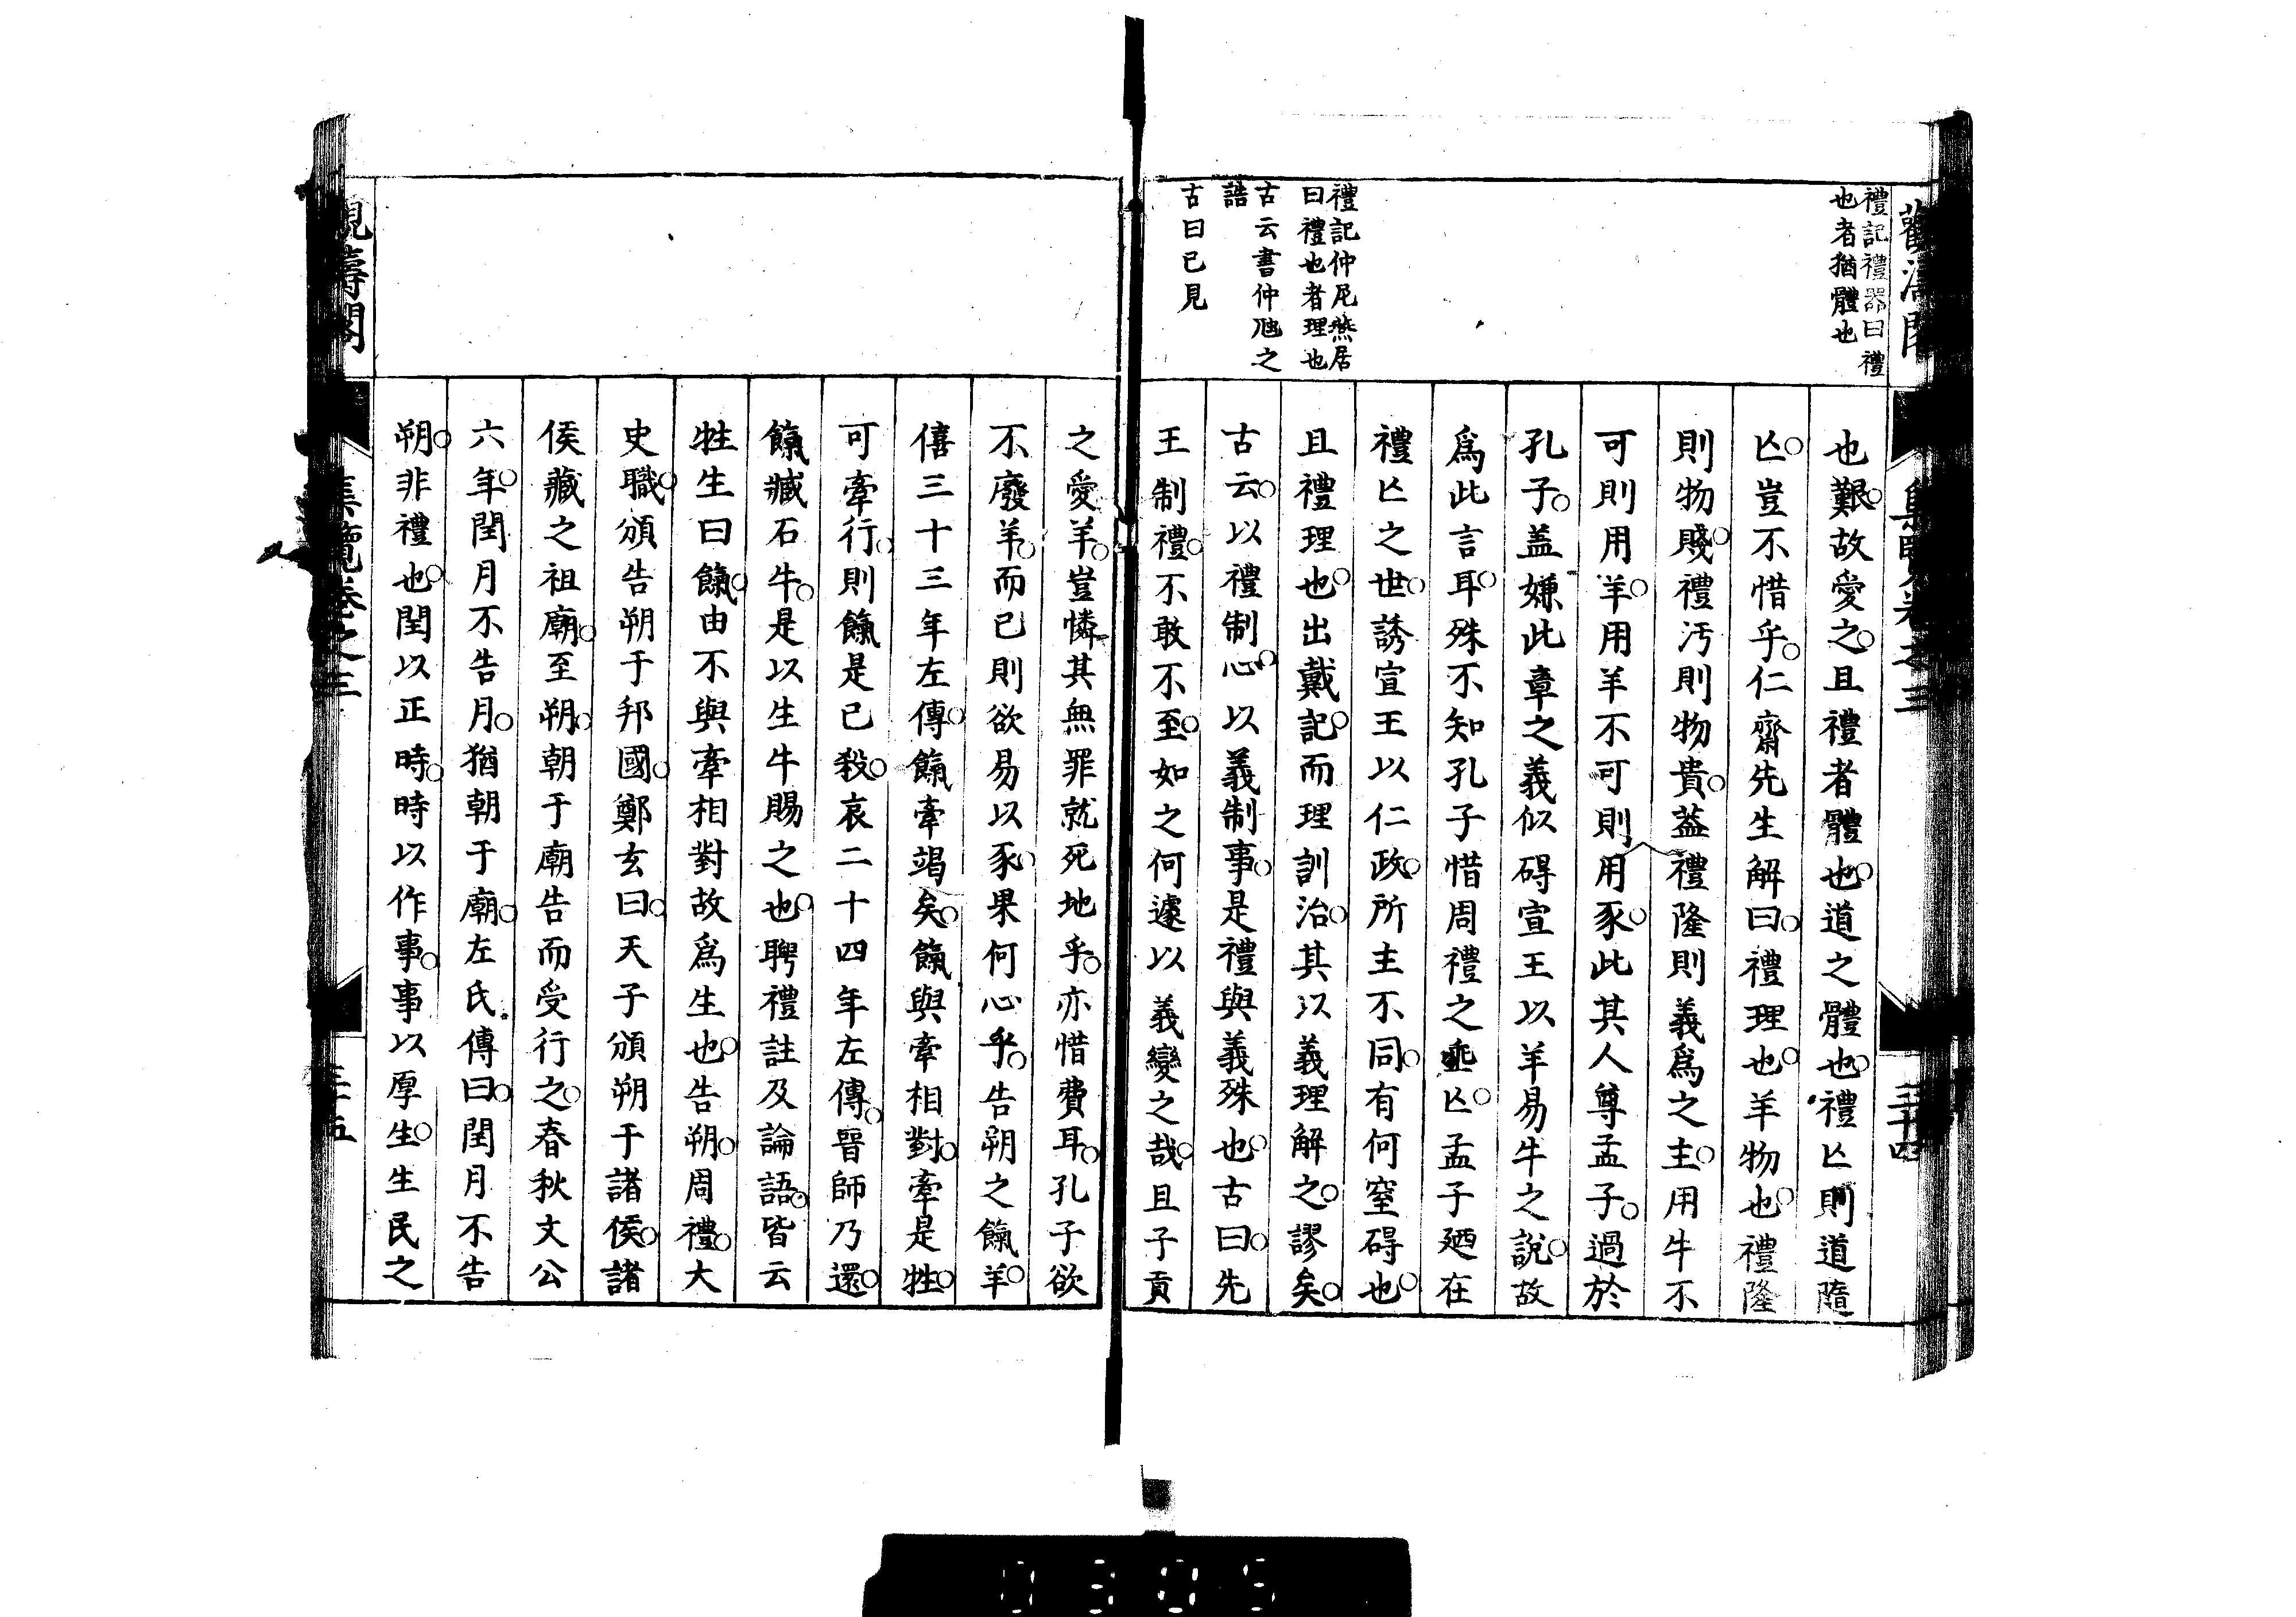 禮記禮器曰禮
也者猶體也
禮記仲尼燕居
曰禮也者理也
古云書仲虺之
誥
古曰已見
也艱故愛之且禮者體也道之體也禮亾則道隨
亾豈不惜乎仁齋先生解曰禮理也羊物也禮隆
則物賤禮汚則物貴蓋禮隆則義爲之主用牛不
可則用羊用羊不可則用豕此其人尊孟子過於
孔子蓋嫌此章之義似碍宣王以羊易牛之說故
爲此言耳殊不知孔子惜周禮之亟亾孟子廼在
禮亾之世誘宣王以仁政所主不同有何窒碍也
且禮理也出戴記而理訓治其以義理解之謬矣
古云以禮制心以義制事是禮與義殊也古曰先
王制禮不敢不至如之何遽以義變之哉且子貢
之愛羊豈憐其無罪就死地乎亦惜費耳孔子欲
不廢羊而已則欲易以豕果何心乎告朔之餼羊
僖三十三年左傳餼牽竭矣餼與牽相對牽是牲
可牽行則餼是已殺哀二十四年左傳晉師乃還
餼臧石牛是以生牛賜之也聘禮註及論語皆云
牲生曰餼由不與牽相對故爲生也告朔周禮大
史職頒告朔于邦國鄭玄曰天子頒朔于諸侯諸
侯藏之祖廟至朔朝于廟告而受行之春秋文公
六年閏月不告月猶朝于廟左氏傳曰閏月不告
朔非禮也閏以正時時以作事事以厚生生民之
集覽卷之三
三十五